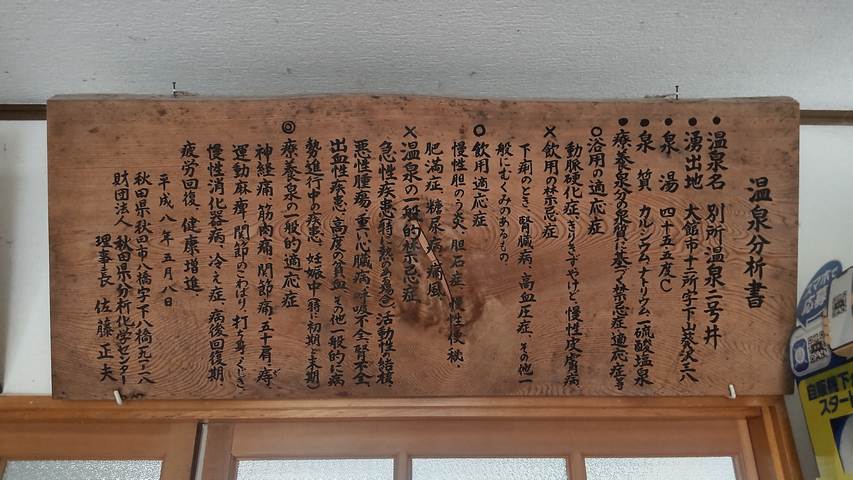 温泉分析書
●温泉名 別所温泉二号井
●湧出地 大館市十二所字下山葵沢三八
●泉湯 四十五・五度C
●泉質 カルシウム、ナトリウム、硫酸塩泉
●療養泉分の泉質に基づく禁忌症、適応症等
○浴用の適応症
動脈硬化症、きりきず、やけど、慢性皮膚病
×飲用の禁忌症
下痢のとき、腎臓病、高血圧症、その他一
般にむくみのあるもの。
○飲用適応症
慢性胆のう炎、胆石症、慢性便秘、
肥満症、糖尿病、痛風
×温泉の一般的禁忌症
急性疾患(特に熱のある場合)活動性の結核、
悪性腫瘍、重い心臓病、呼吸不全、腎不全、
出血性疾患、高度の貧血、その他一般的に病
勢進行中の疾患、妊娠中(特に初期と末期)
◎療養泉の一般的適応症
神経痛、筋肉痛、関節痛、五十肩、痔、
運動麻痺、関節のこわばり、打ち身、くじき、
慢性消化器病、冷え症、病後回復期、
疲労回復、健康増進、
平成八年五月八日
秋田県秋田市八橋字下八橋九一・八
財団法人 秋田県分析化学センター
理事長 佐藤正夫
スマホで
応募
自販機下
スタート